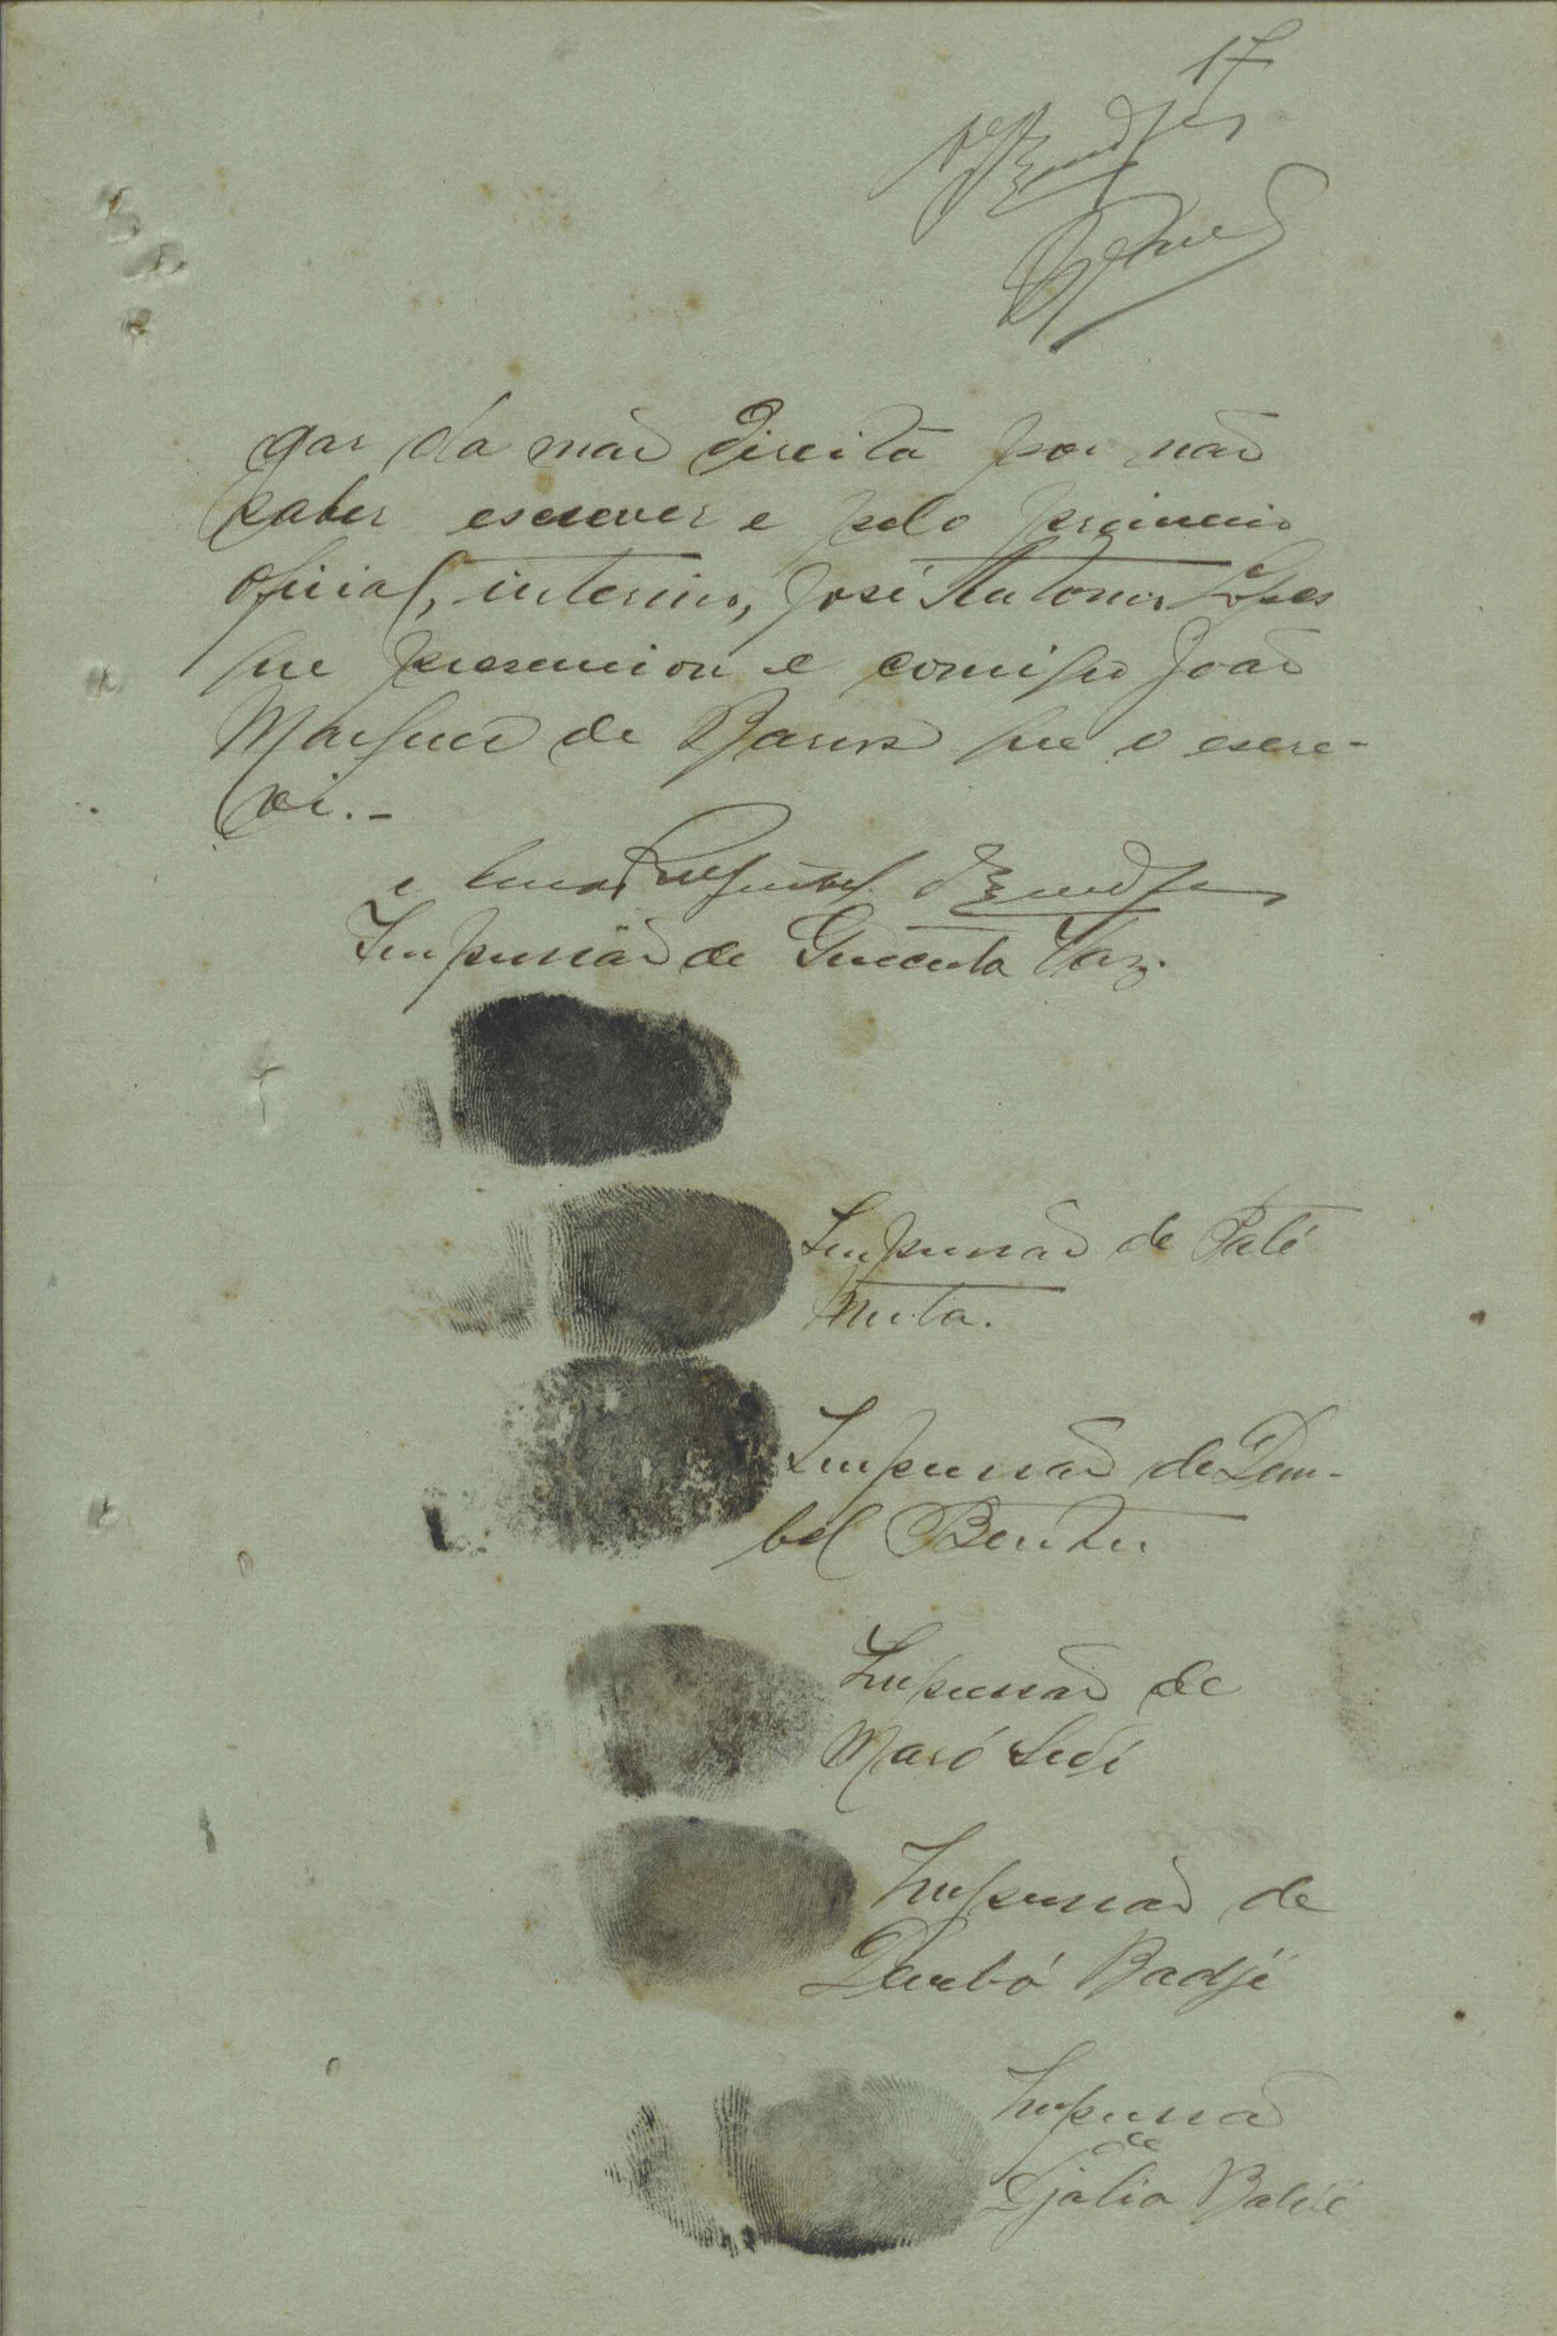 17
gar da mão direita por não
saber escrever e pelo primeiro
oficial, interino, José Antonio Lopes
que presenciou e comigo João
Marques de Barros que o escre-
vi. -
Impressão de Vaz.
Impressão de Paté
Muta.
Impressão de Dem-
bel
Impressão de
Maró Sidi
Impressão de
Dembó Badjé
Impressão
de
Djalia Baldé